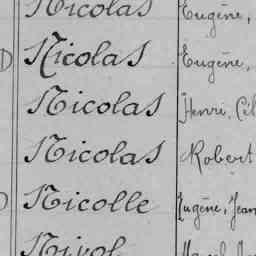 Nicolas Eugène,
D Nicolas Eugène,
Nicolas Henri, Cél
Nicolas Robert
Nicolle Eugène, Jean
Nivol